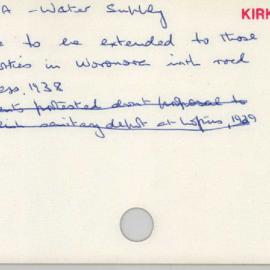 A - Water Supply
KIRK
e to be extended to those
rties in Woronora with road
ess, 1938
ents protested about proposal to
lish sanitary depot at Loftus, 1939